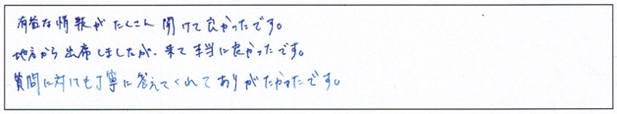 有益な情報がたくさん聞けて良かったです。
地方から出席しましたが、来て本当に良かったです。
質問に対しても丁寧に答えてくれてありがたかったです。